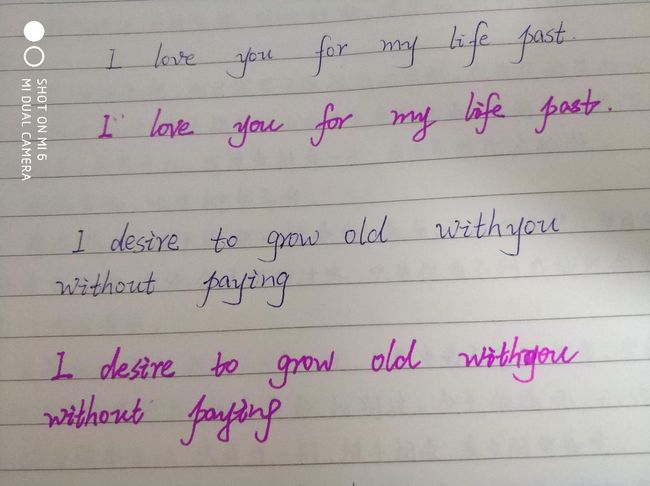 I love you for my life past.
I love you for my life past.
I desire to grow old withyou
without paying
I desire to grow old withyou
without paying
SHOT ON MI 6
MI DUAL CAMERA